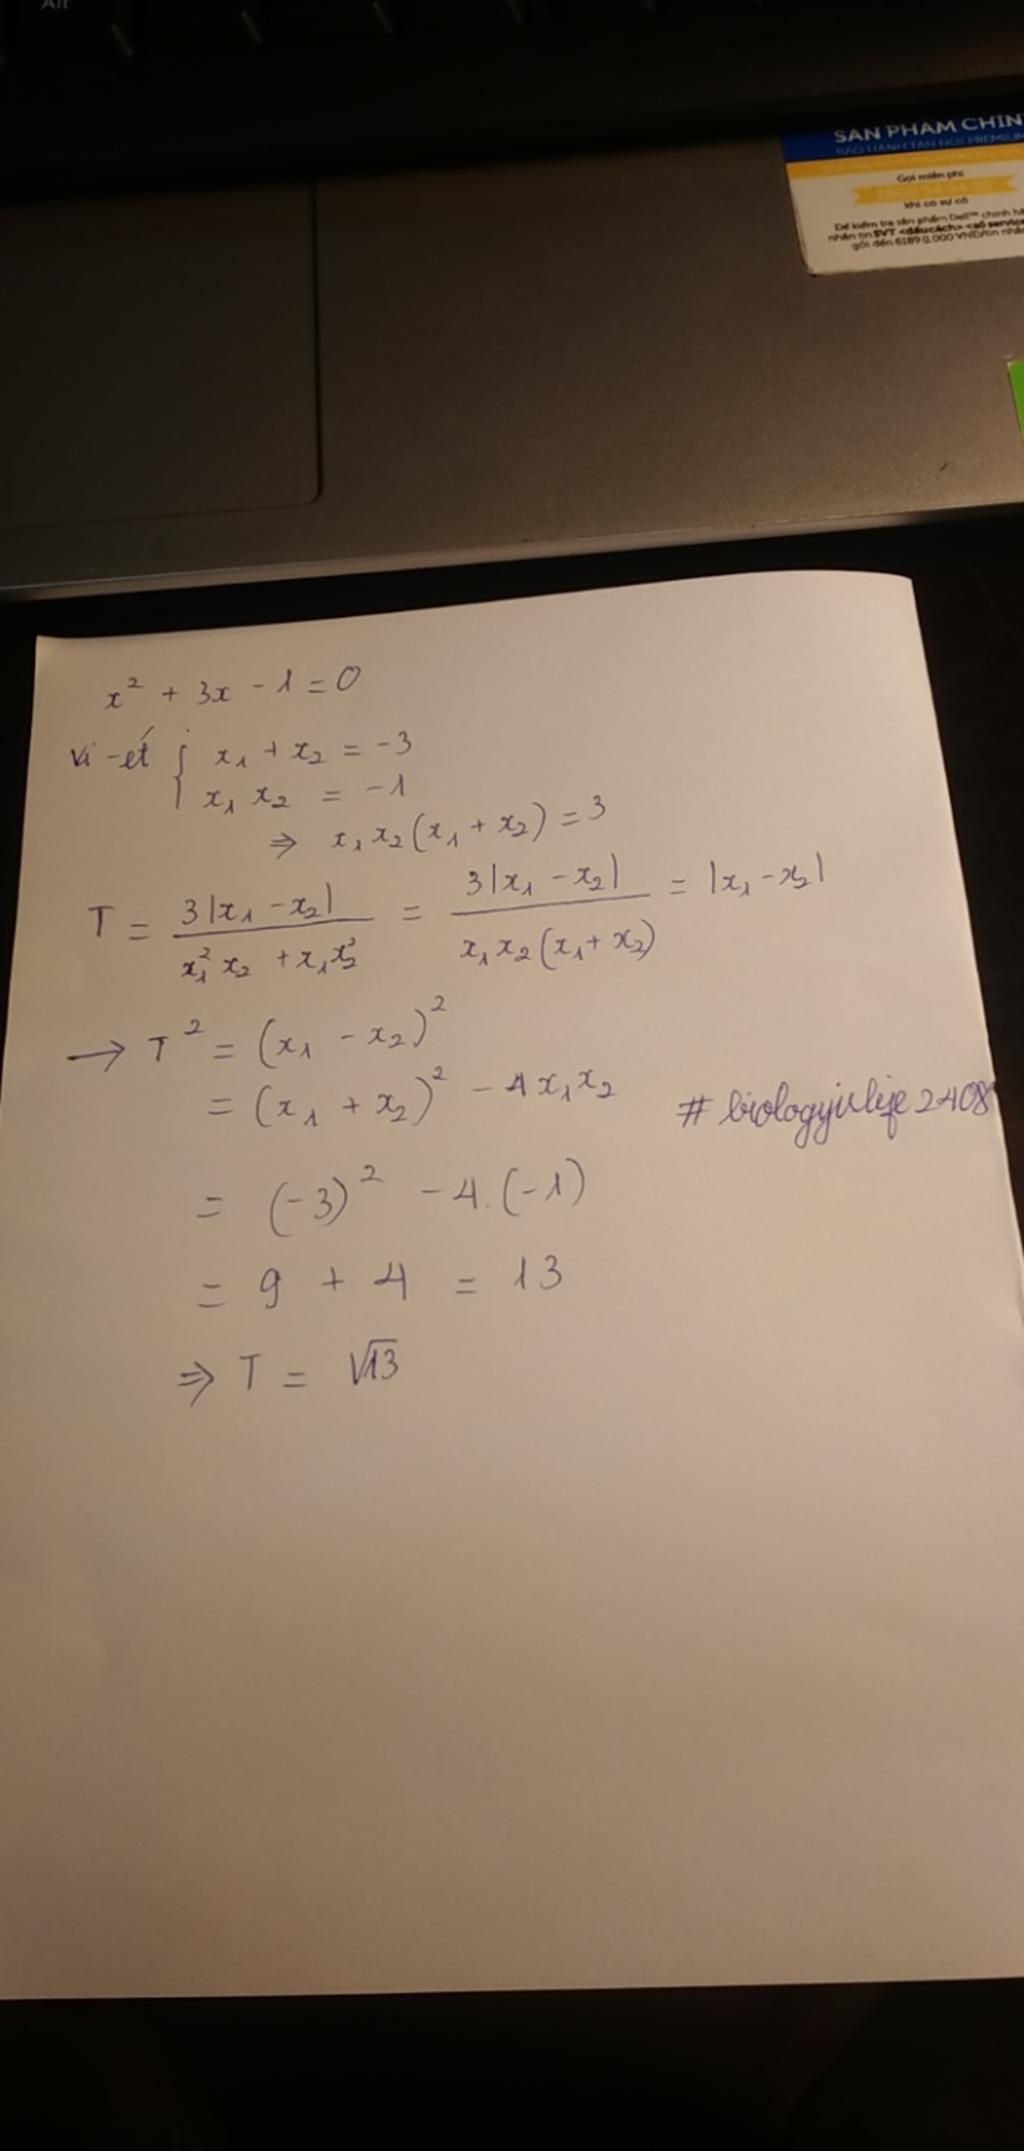 Alt
SẢN PHẨM CHÍN
Gọi miễn phí
khi có sự cố
Để kiểm tra sản phẩm Dell™ chính
nhắn tin SVT <dấu cách> <số service
gởi đến 6189 (1,000 VND/tin nhắ
x² + 3x - 1 = 0
Vi-ét { x₁ + x₂ = -3
x₁ x₂ = -1
⇒ x₁x₂(x₁ + x₂) = 3
T = 3|x₁ - x₂| / (x₁²x₂ + x₁x₂²) = 3|x₁ - x₂| / (x₁x₂(x₁ + x₂)) = |x₁ - x₂|
→ T² = (x₁ - x₂)²
= (x₁ + x₂)² - 4x₁x₂
#biologyislife2408
= (-3)² - 4.(-1)
= 9 + 4 = 13
⇒ T = √13